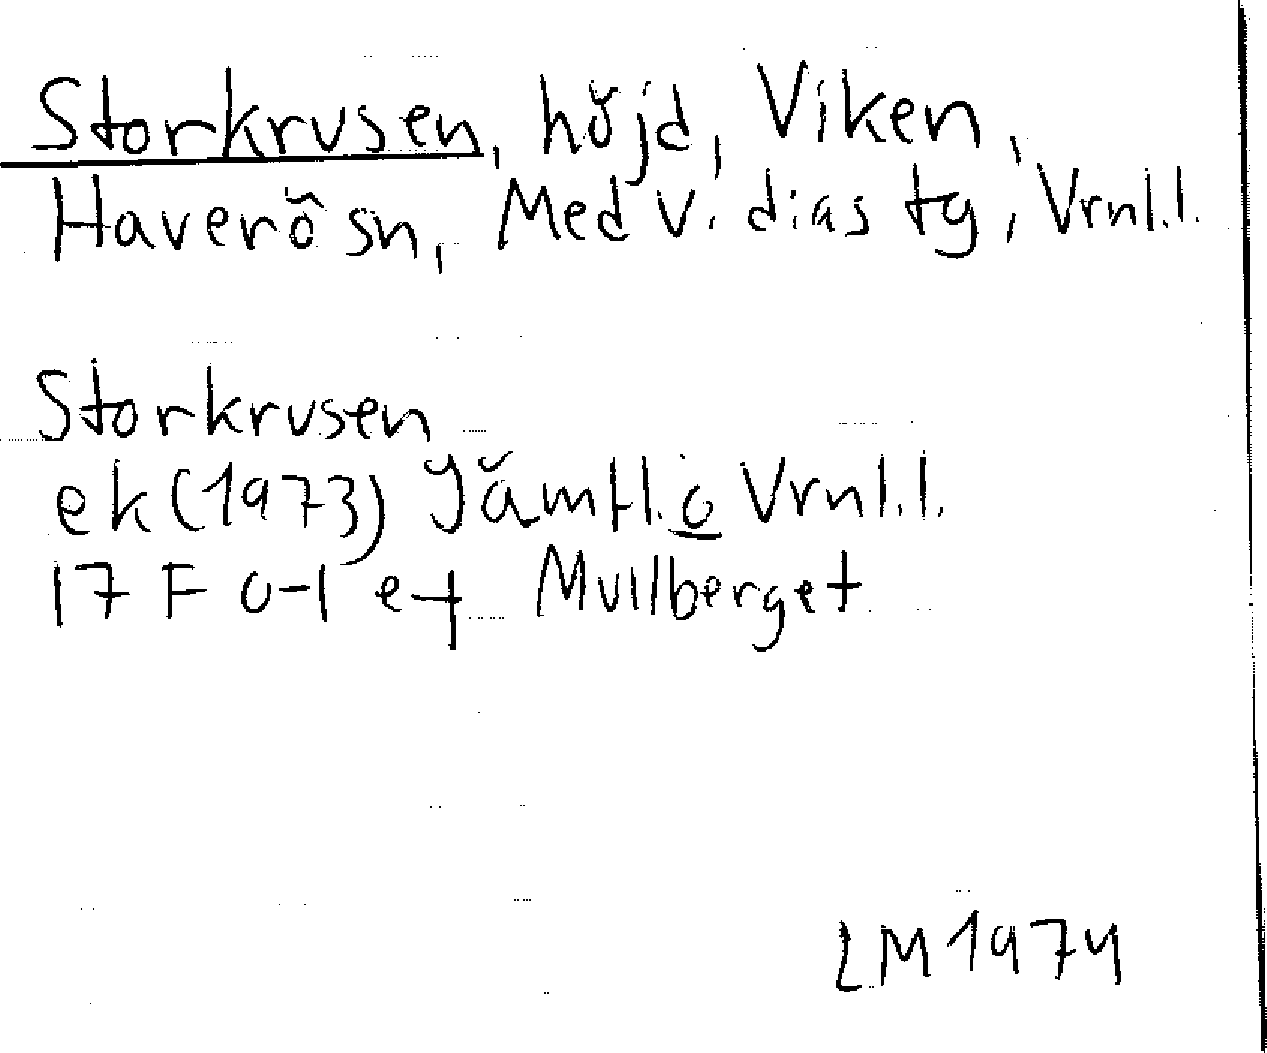 Storkrusen, höjd, Viken,
Haverö sn, Med v. dias tg, Vrnl.l.
Storkrusen
ek (1973) Jämtl. o Vrnl.l.
17 F 0-1 e-f Mullberget
LM 1974